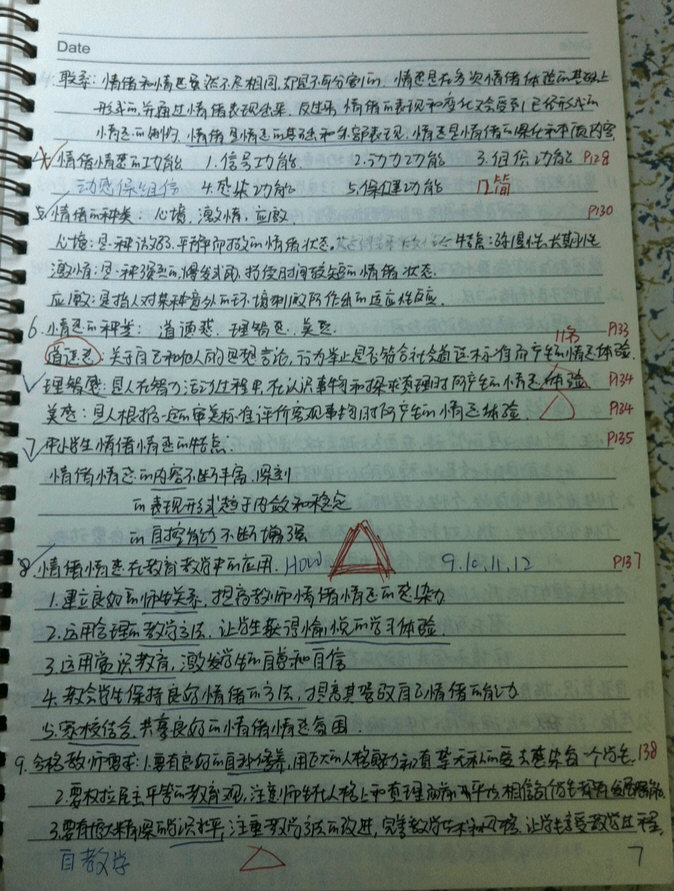 Date
联系：情绪和情感虽然不尽相同，却是不可分割的。情感是在多次情绪体验的基础上
形成的，并通过情绪表现出来，反过来，情绪的表现和变化又会受到已经形成的
情感的制约。情绪是情感的基础和外部表现，情感是情绪的深化和本质内容
4、情绪情感的功能 1.信号功能 2.动力功能 3.组织功能 P128
动感保组信 4.感染功能 5.保健功能 12简
5、情绪的种类：心境，激情，应激 P130
心境：是一种微弱、平静而持久的情绪状态。特点：弥漫性、长期性
激情：是一种强烈的、爆发式的、持续时间较短的情绪状态
应激：是指人对某种意外的环境刺激所作出的适应性反应。
6、情感的种类：道德感、理智感、美感 11名
道德感：关于自己和他人的思想言论，行为举止是否符合社会道德标准而产生的情感体验. P133
理智感：是人在智力活动过程中，在认识事物和探求真理时所产生的情感体验 P134
美感：是人根据一定的审美标准评价客观事物时所产生的情感体验. P134
7、中小学生情绪情感的特点. P135
情绪情感的内容不断丰富，深刻
的表现形式趋于内敛和稳定
的自控能力不断增强
8、情绪情感在教育教学中的应用. HOW 9.10.11.12 P137
1.建立良好的师生关系，提高教师情绪情感的感染力
2.运用合理的教学方法，让学生获得愉悦的学习体验.
3.运用赏识教育，激发学生的自尊和自信
4.教会学生保持良好情绪的方法，提高其驾驭自己情绪的能力
5.家校结合，共享良好的情绪情感氛围.
9.合格教师需求：1.要有良好的自我修养，用巨大的人格魅力和真挚无私的爱去感染每一个学生. 138
2.要树立民主平等的教育观，注意师生在人格上和真理面前的平等，相信每个学生都有发展潜能.
3.要有博大精深的学识水平，注重教学方法的改进，完善教学艺术和风格，让学生享受教学过程.
自教学 7